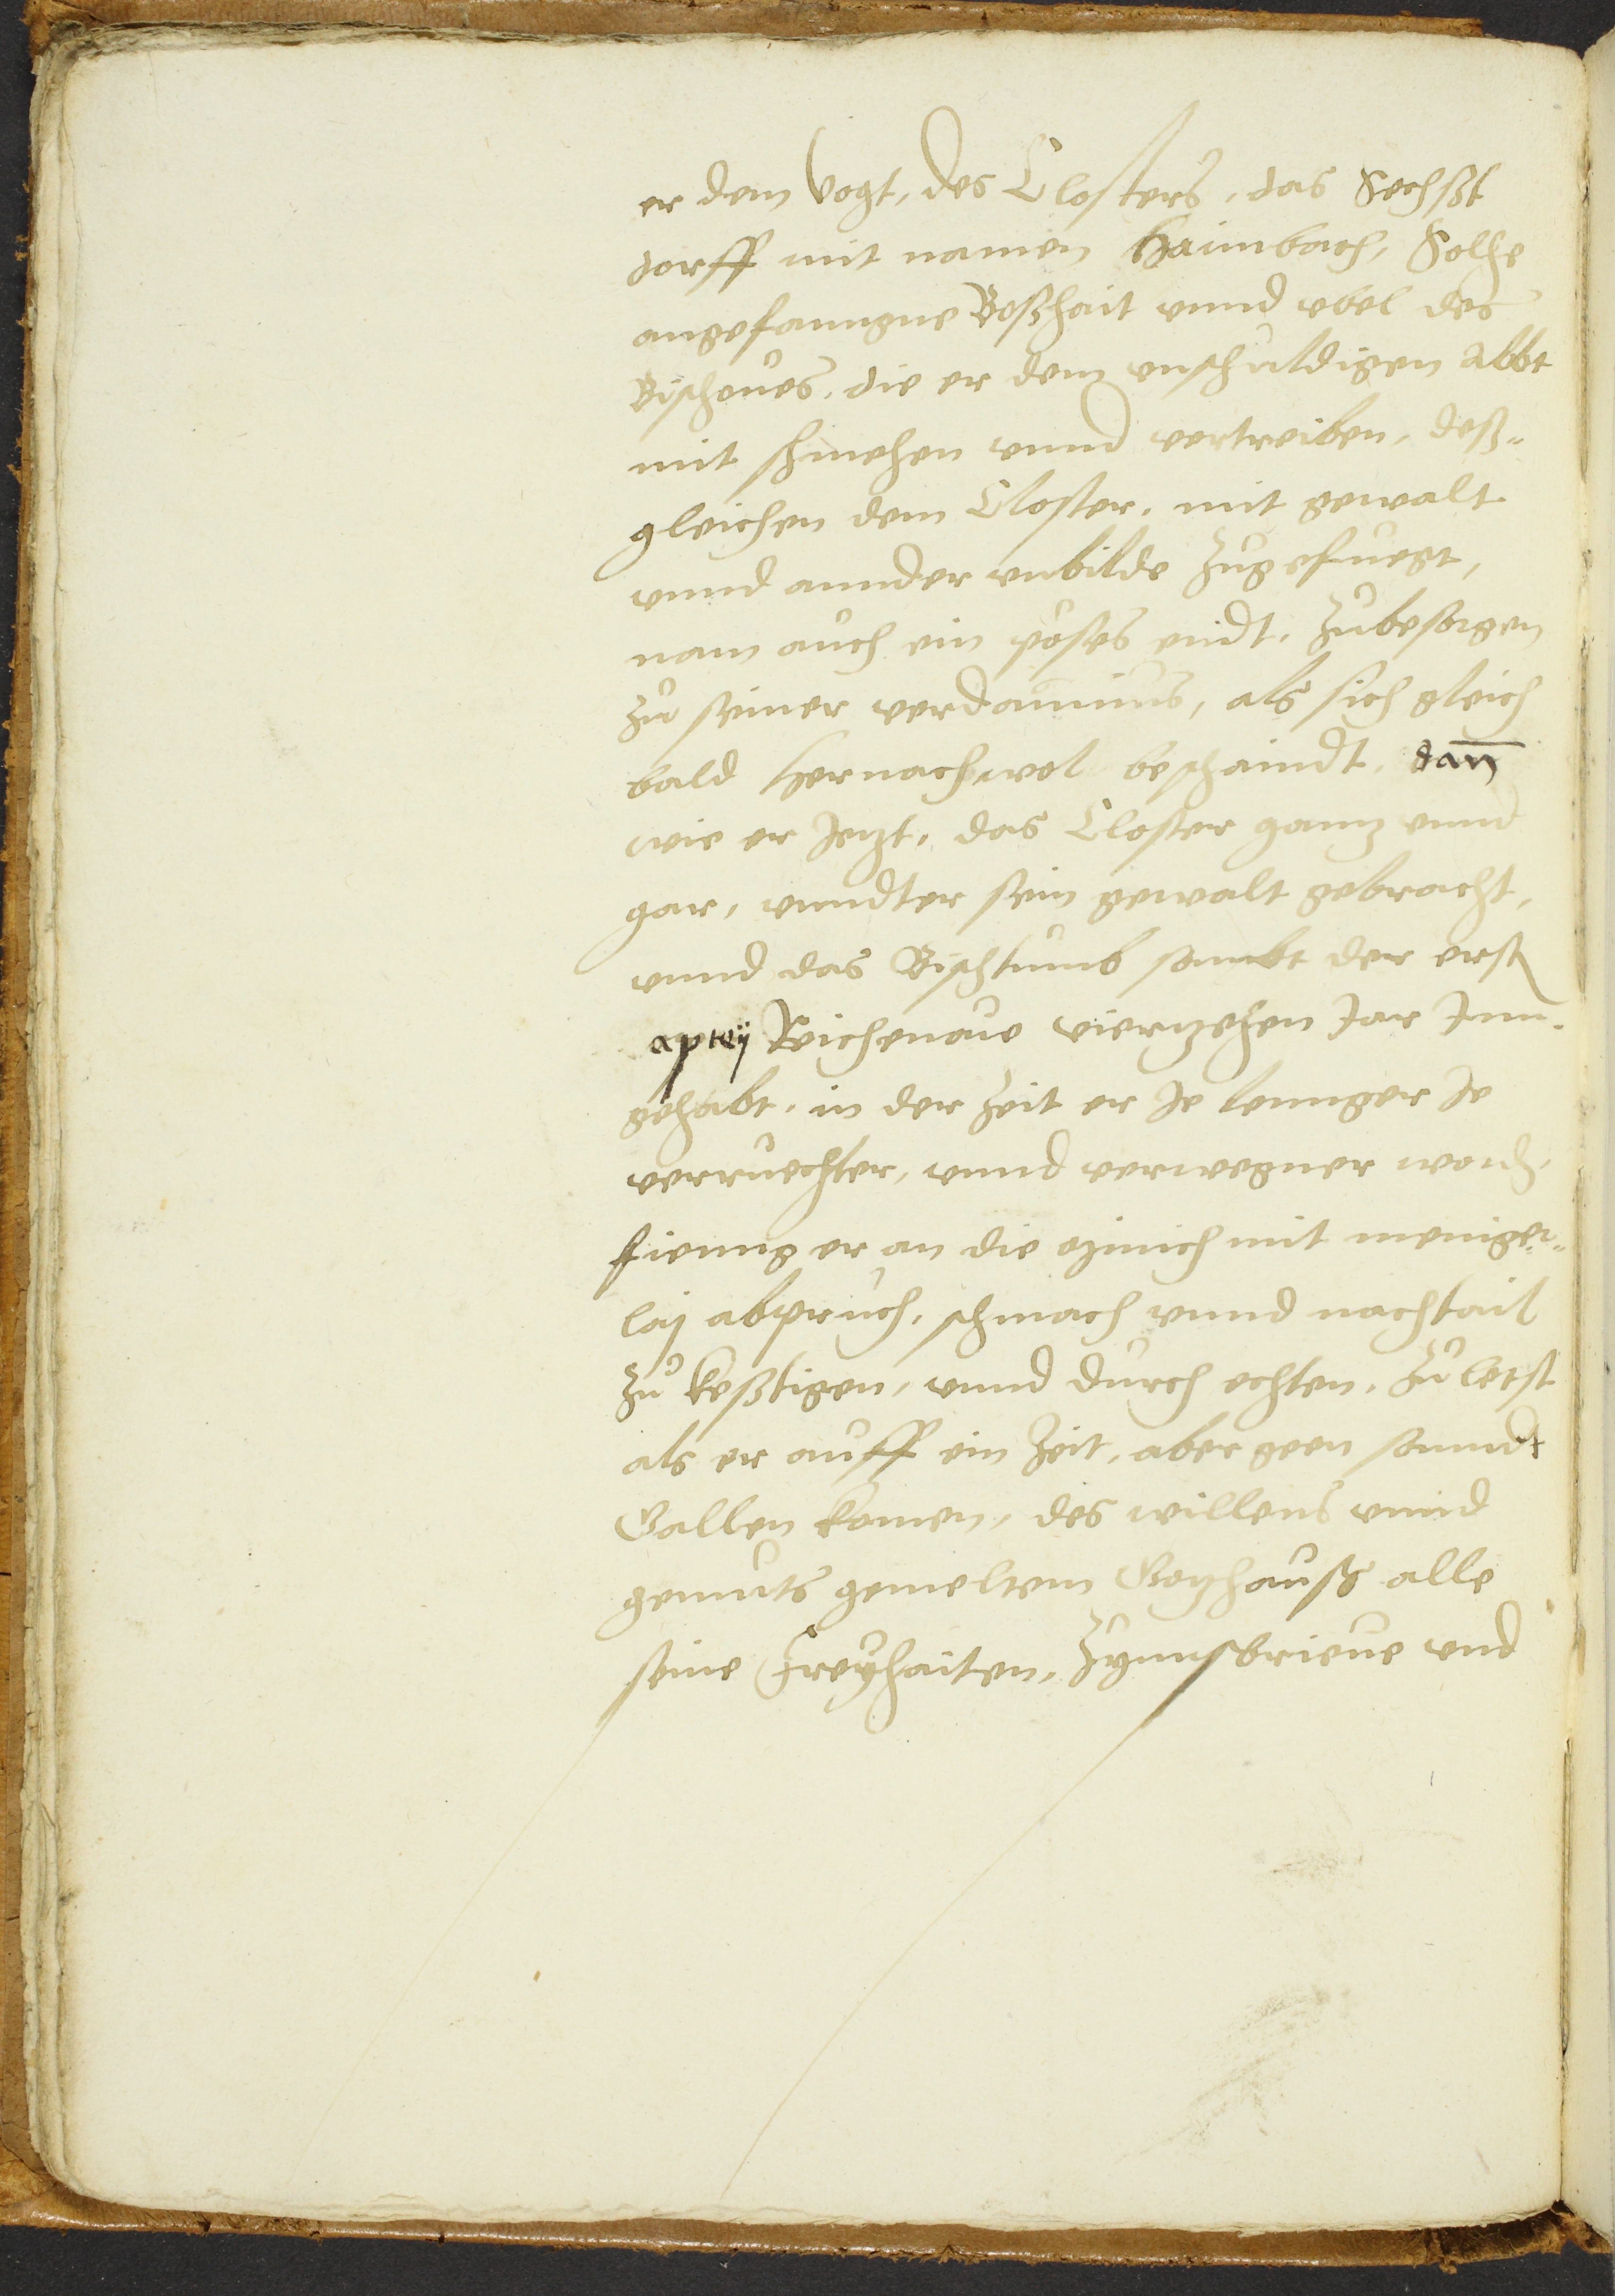 er dem Vogt, des Closters, das Sechßt
dorff mit namen Haimbach, Solhe
angefanngne Boßhait vnnd vbel des
Bischoues, die er dem vnschuldigen Abbt
mit schmehen vnnd vertreiben, deß„
gleichen dem Closter, mit gewalt
vnnd annder vnbilde zugefuegt,
nam auch ein poses endt, zubesorgen
zu seiner verdamnus, als sich gleich
bald hernach wol beschaindt, dan̄
wie er Jetzt, das Closter gantz vnnd
gar, vnndter sein gewalt gebracht,
vnnd das Bischtumb sambt der erst
aptey Reichenaue vierzehen Jar Inn
gehabt, in der zeit er Je lennger Je
verruechter, vnnd verwegner ward,
fienng er an die münich mit maniger„
lay abpruch, schmach vnnd nachtail
zu kestigen, vnnd durch echten, zu letst
als er auff ein zeit, aber geen sanndt
Gallen komen, des willens vnnd
gemuts gemeltem Gotzhauß alle
seine Freyhaiten, Zynnsbrieue vnd